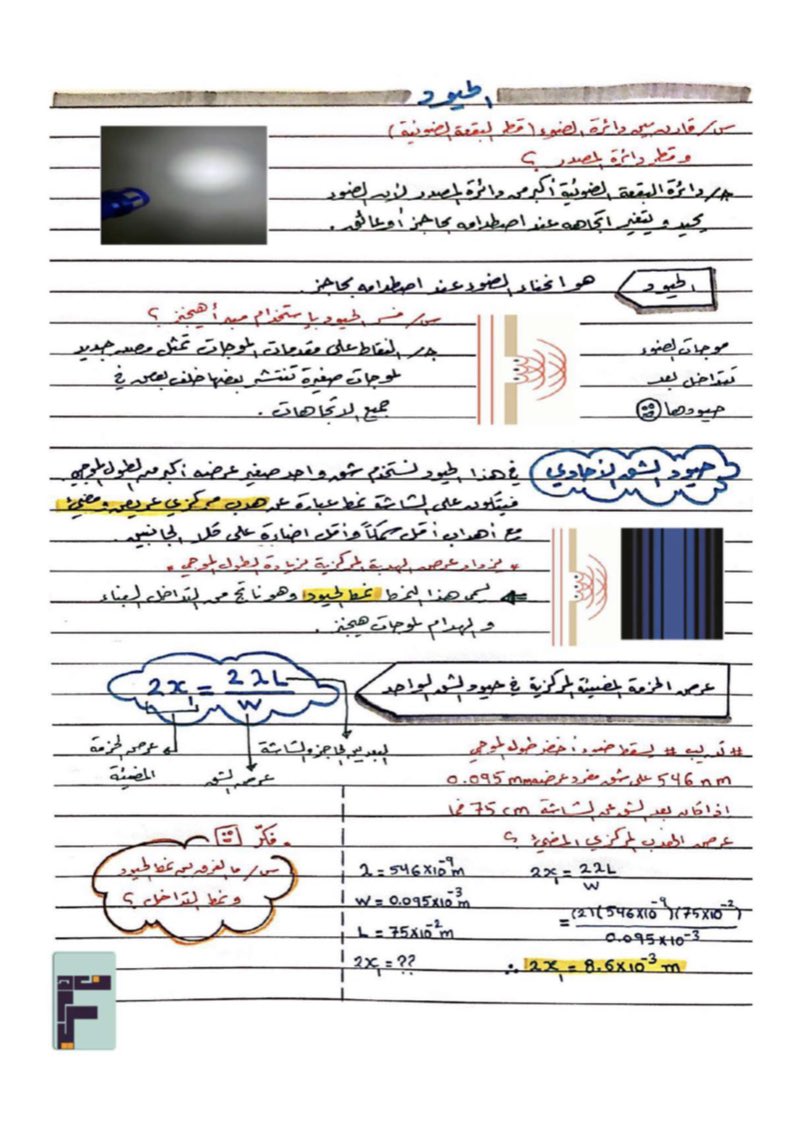 الحيود
س/ قارن بين دائرة الضوء (قطر البقعة الضوئية)
و قطر دائرة المصدر ؟
ج/ دائرة البقعة الضوئية أكبر من دائرة المصدر لأن الضوء
يحيد و يتغير اتجاهه عند اصطدامه بحاجز أو عائق .
الحيود
هو انحناء الضوء عند اصطدامه بحاجز .
س/ فسر الحيود بإستخدام مبدأ هيجنز ؟
ج/ النقاط على مقدمات الموجات تمثل مصدر جديد
لموجات صغيرة تنتشر بعضها خلف بعض في
جميع الاتجاهات .
موجات الضوء
تتداخل بعد
حيودها
حيود الشق الأحادي
في هذا الحيود نستخدم شق واحد صغير عرضه أكبر من الطول الموجي
فيتكون على الشاشة نمط عبارة عن هدب مركزي عريض ومضيء
مع أهداب أقل سمكاً وأقل اضاءة على كلا الجانبين .
* يزداد عرض الهدبة المركزية بزيادة الطول الموجي .
⇐ يسمى هذا النمط نمط الحيود وهو ناتج من التداخل البناء
و الهدام لموجات هيجنز .
عرض الحزمة المضيئة المركزية في حيود الشق الواحد
2x₁ = 2λL / W
البعد بين الحاجز والشاشة
عرض الحزمة
المضيئة
عرض الشق
# تدريب # يسقط ضوء أخضر طول الموجي
546 nm على شق مفرد عرضه 0.095 mm
اذا كان بعد الشق عن الشاشة 75 cm فما
عرض الهدب المركزي المضيء ؟
2x₁ = 2λL / W
= (2)(546x10⁻⁹)(75x10⁻²) / 0.095x10⁻³
∴ 2x₁ = 8.6x10⁻³ m
λ = 546x10⁻⁹ m
W = 0.095x10⁻³ m
L = 75x10⁻² m
2x₁ = ??
. فكّر
س/ ما الفرق بين نمط الحيود
و نمط التداخل ؟